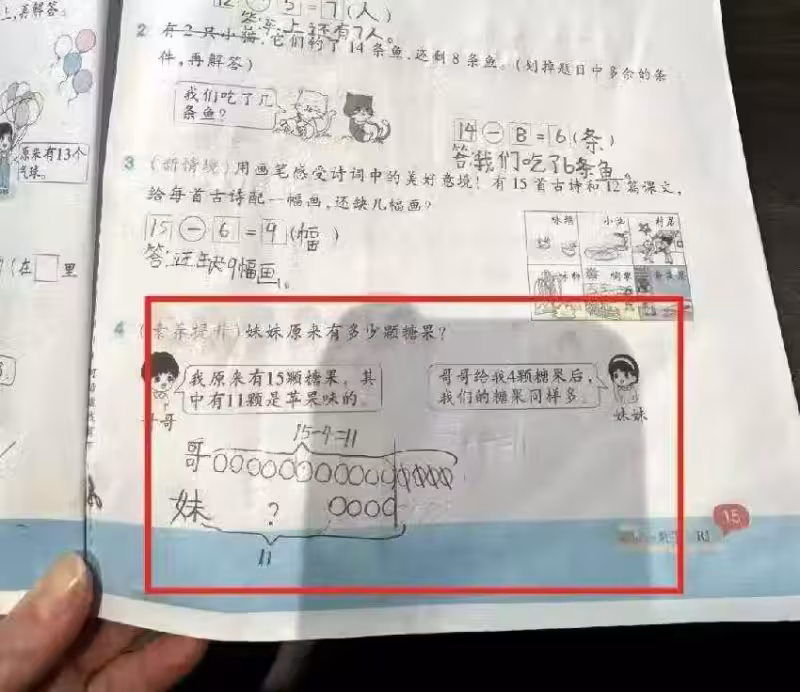 上,再解答。
12 - 5 = 7 (人)
答:车上还有7人。
2 有2只小猫,它们钓了14条鱼,还剩8条鱼。(划掉题目中多余的条
件,再解答)
我们吃了几
条鱼?
14 - 8 = 6 (条)
答:我们吃了6条鱼。
原来有13个
气球。
3 (新情境)用画笔感受诗词中的美好意境!有15首古诗和12篇课文,
给每首古诗配一幅画,还缺几幅画?
15 - 6 = 9 (幅)
答:还缺9幅画。
咏鹅 小池 村居
(在 里
4 (素养提升)妹妹原来有多少颗糖果?
我原来有15颗糖果,其
中有11颗是苹果味的。
哥哥给我4颗糖果后,
我们的糖果同样多。
哥哥
妹妹
15-4=11
哥
妹 ?
11
15
RJ